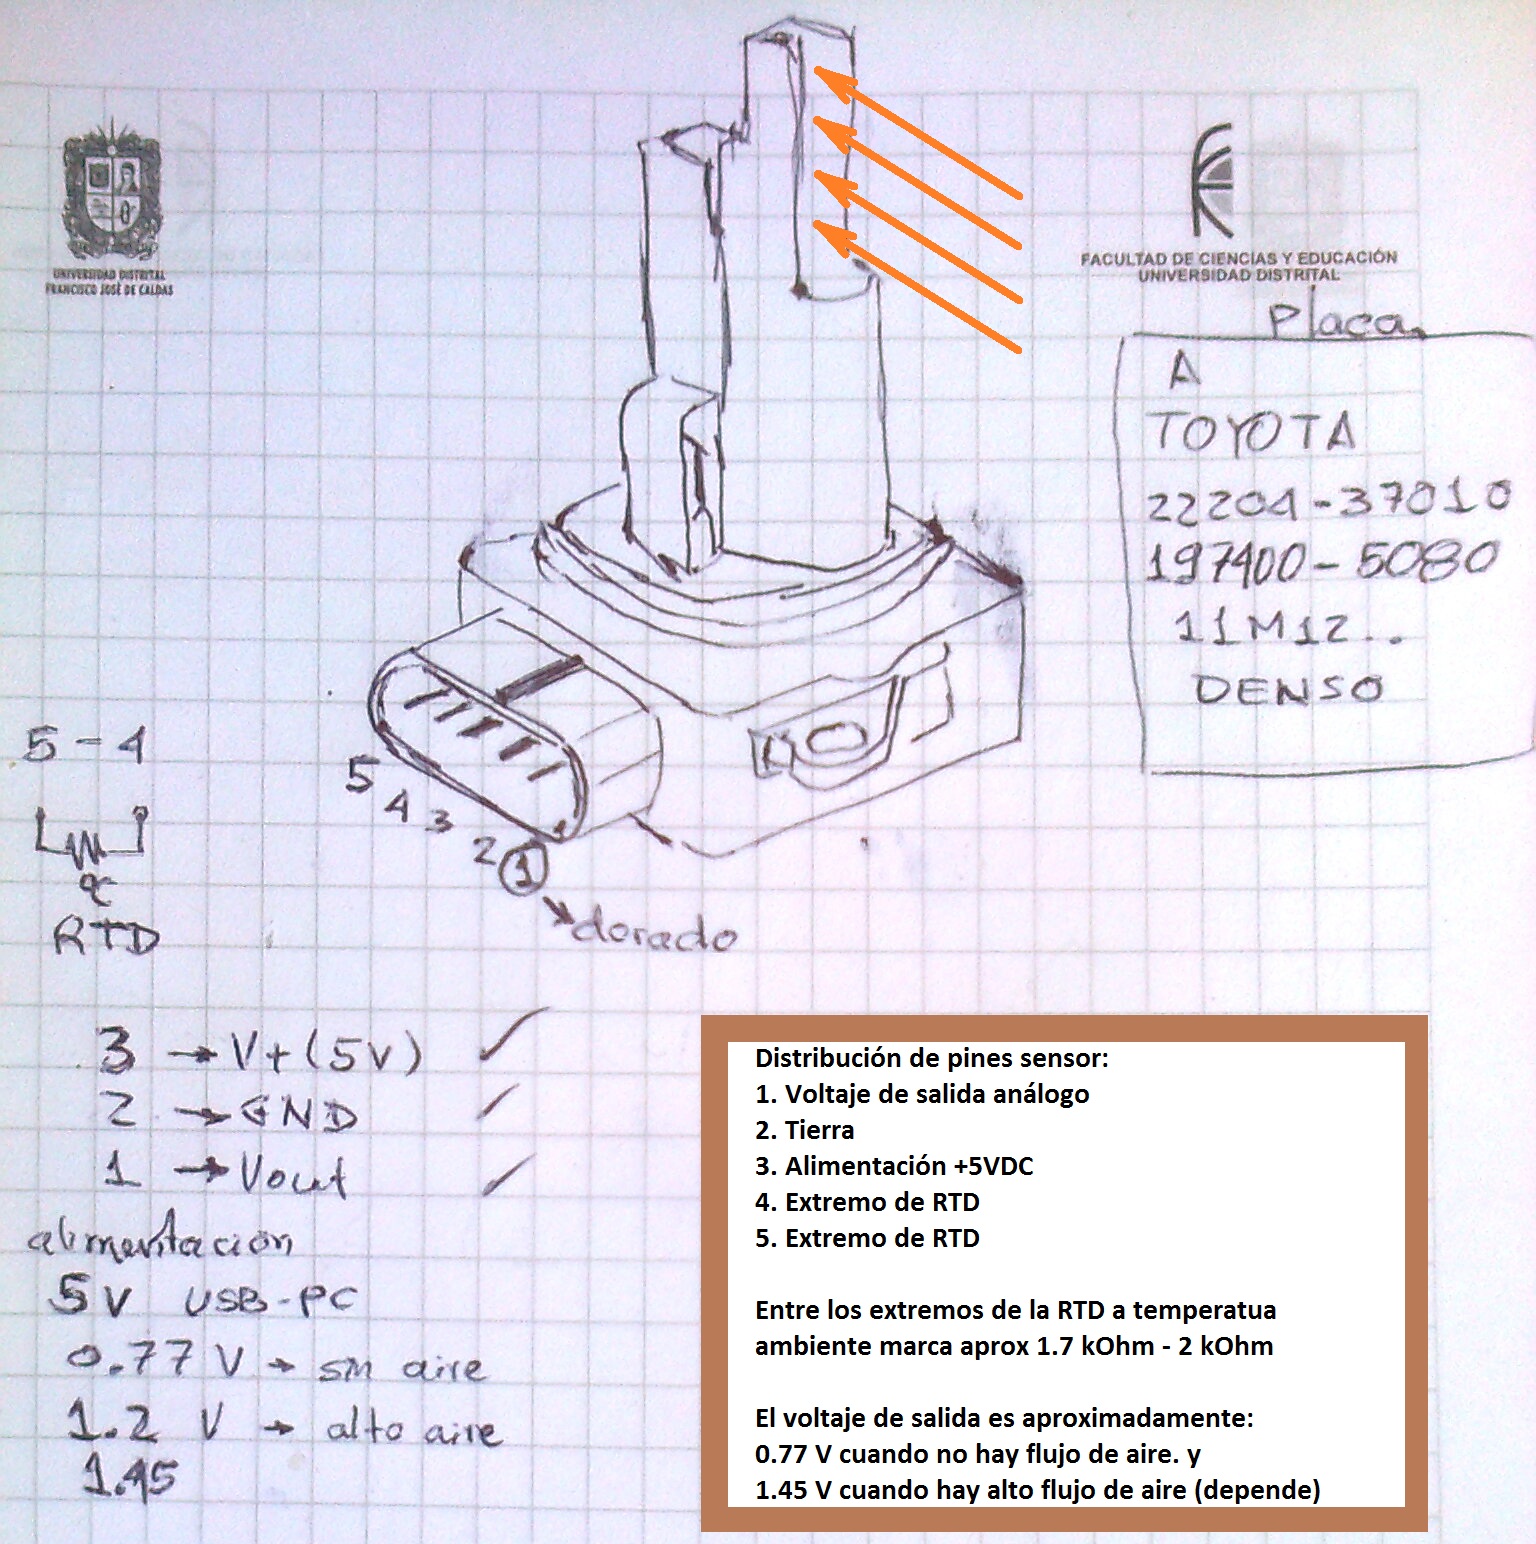 UNIVERSIDAD DISTRITAL
FRANCISCO JOSÉ DE CALDAS
FACULTAD DE CIENCIAS Y EDUCACIÓN
UNIVERSIDAD DISTRITAL
Placa
A
TOYOTA
22204-37010
197400-5080
11M12..
DENSO
5 - 4
RTD
5
4
3
2
1
dorado
3 → V+(5V) ✓
2 → GND ✓
1 → Vout ✓
alimentación
5V USB-PC
0.77 V → sin aire
1.2 V → alto aire
1.45
Distribución de pines sensor:
1. Voltaje de salida análogo
2. Tierra
3. Alimentación +5VDC
4. Extremo de RTD
5. Extremo de RTD
Entre los extremos de la RTD a temperatua
ambiente marca aprox 1.7 kOhm - 2 kOhm
El voltaje de salida es aproximadamente:
0.77 V cuando no hay flujo de aire. y
1.45 V cuando hay alto flujo de aire (depende)